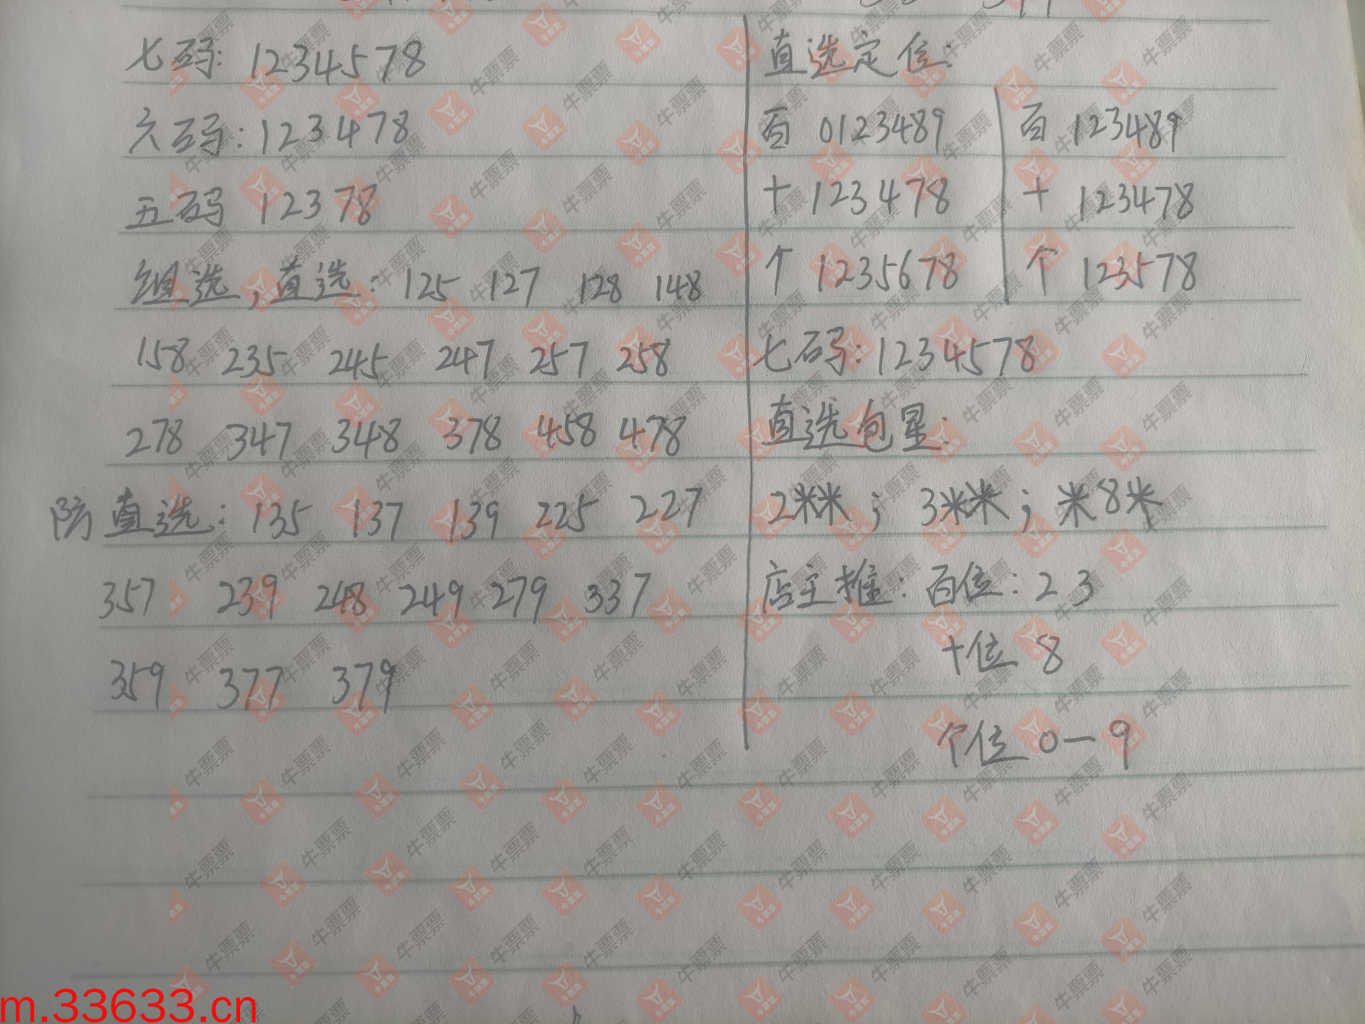 七码: 1234578
六码: 123478
五码 12378
组选,直选: 125 127 128 148
158 235 245 247 257 258
278 347 348 378 458 478
防直选: 135 137 139 225 227
357 239 248 249 279 337
359 377 379
直选定位:
百 0123489
十 123478
个 1235678
百 123489
十 123478
个 123578
七码: 1234578
直选包星:
2米米; 3米米; 米8米
店主推: 百位: 2 3
十位 8
个位 0一9
牛票票
m.33633.cn